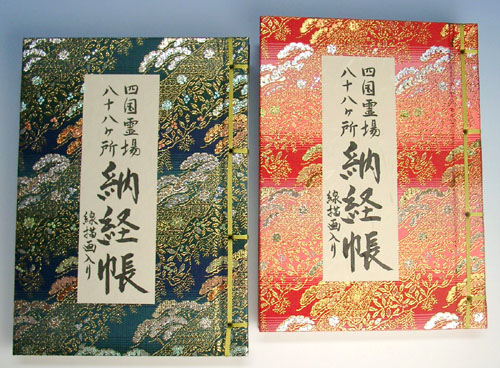 四国霊場
八十八ヶ所
納経帳
線描画入り
四国霊場
八十八ヶ所
納経帳
線描画入り